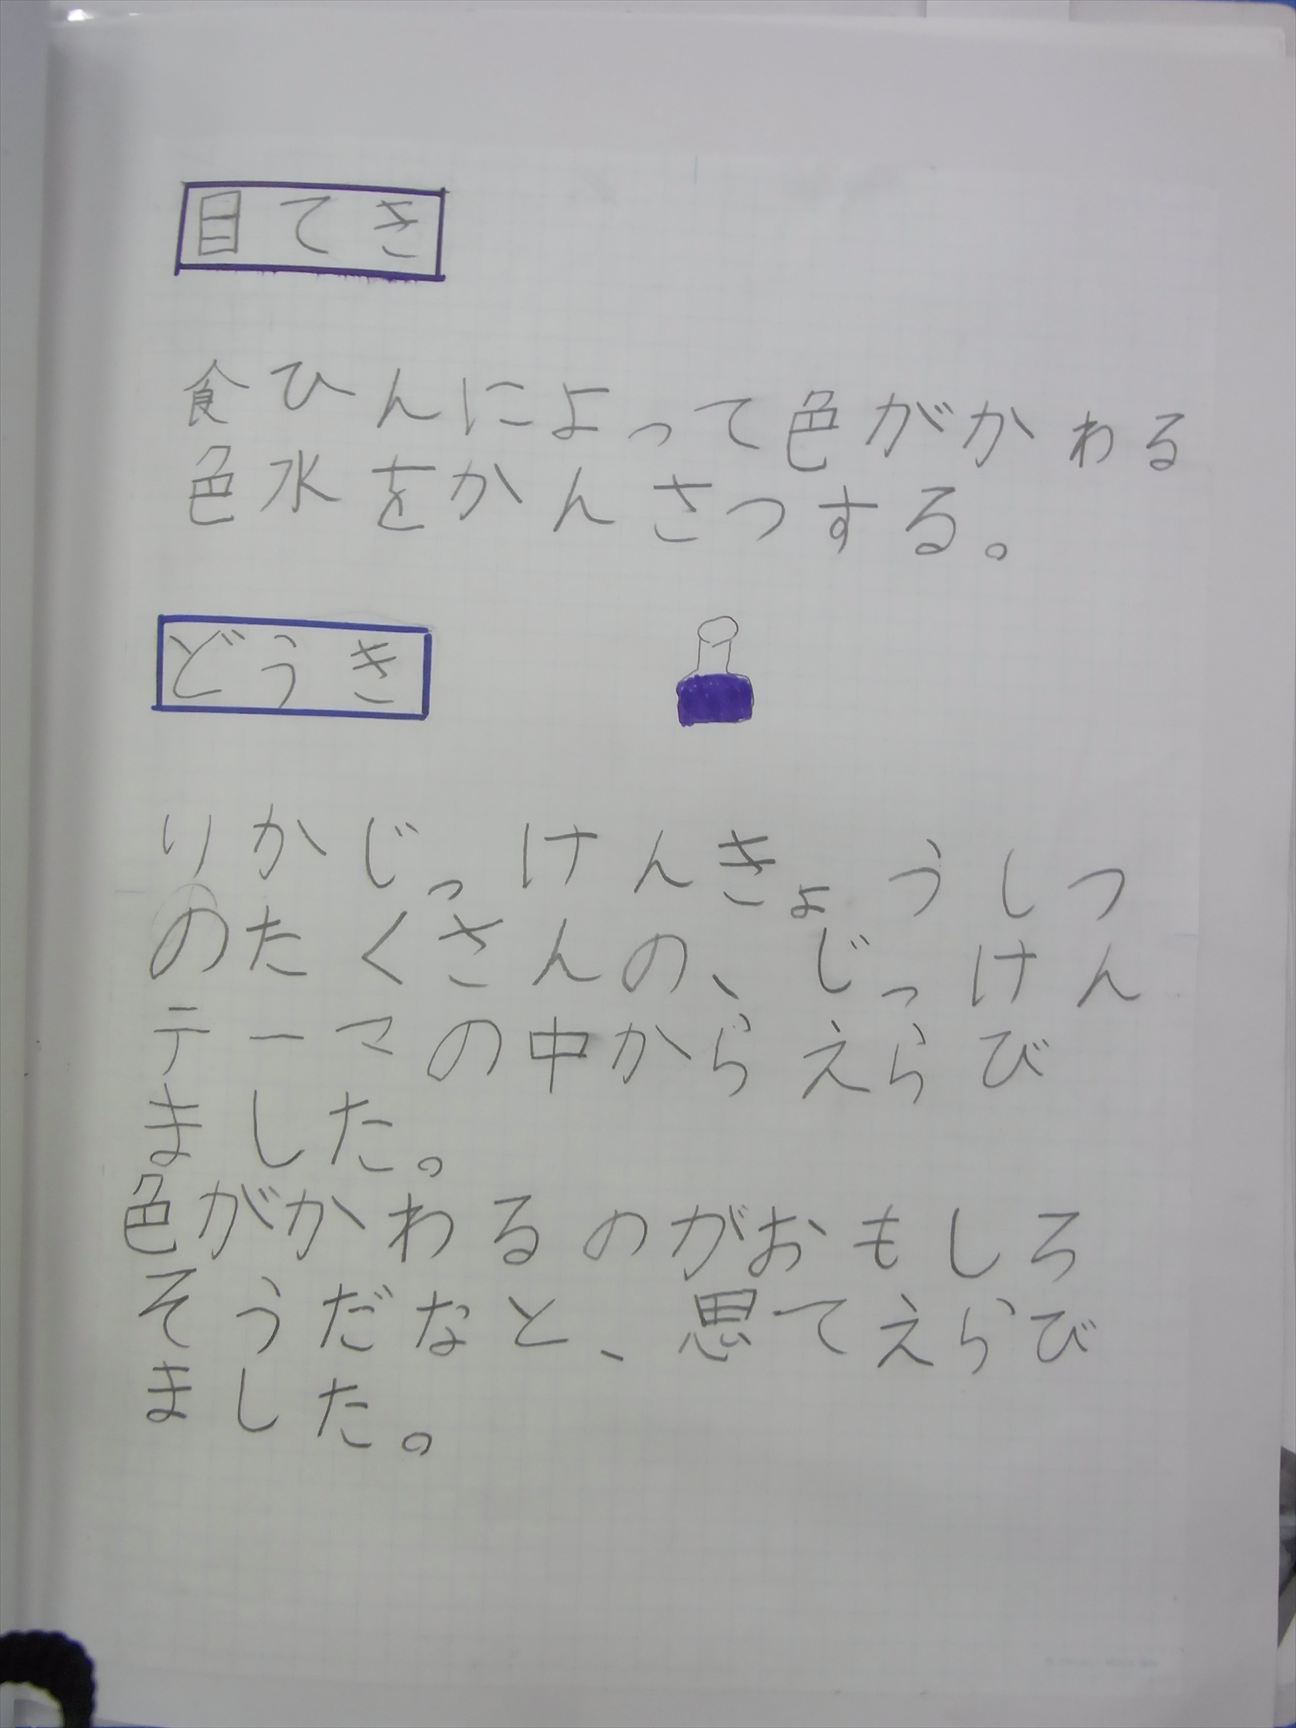 目てき
食ひんによって色がかわる
色水をかんさつする。
どうき
りかじっけんきょうしつ
のたくさんの、じっけん
テーマの中からえらび
ました。
色がかわるのがおもしろ
そうだなと、思てえらび
ました。